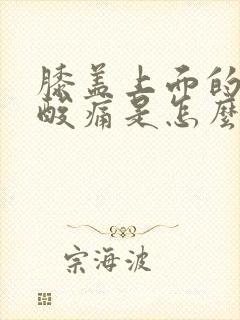 膝盖上面的
酸痛是怎麼
宗海波